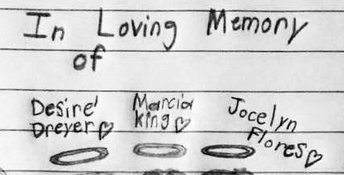 In Loving Memory
of
Desire' Dreyer♡
Marcia King♡
Jocelyn Flores♡